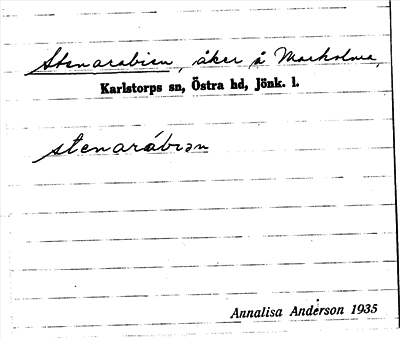 Stenarabien, åker å Markolma,
Karlstorps sn, Östra hd, Jönk. l.
stenarábiən
Annalisa Anderson 1935